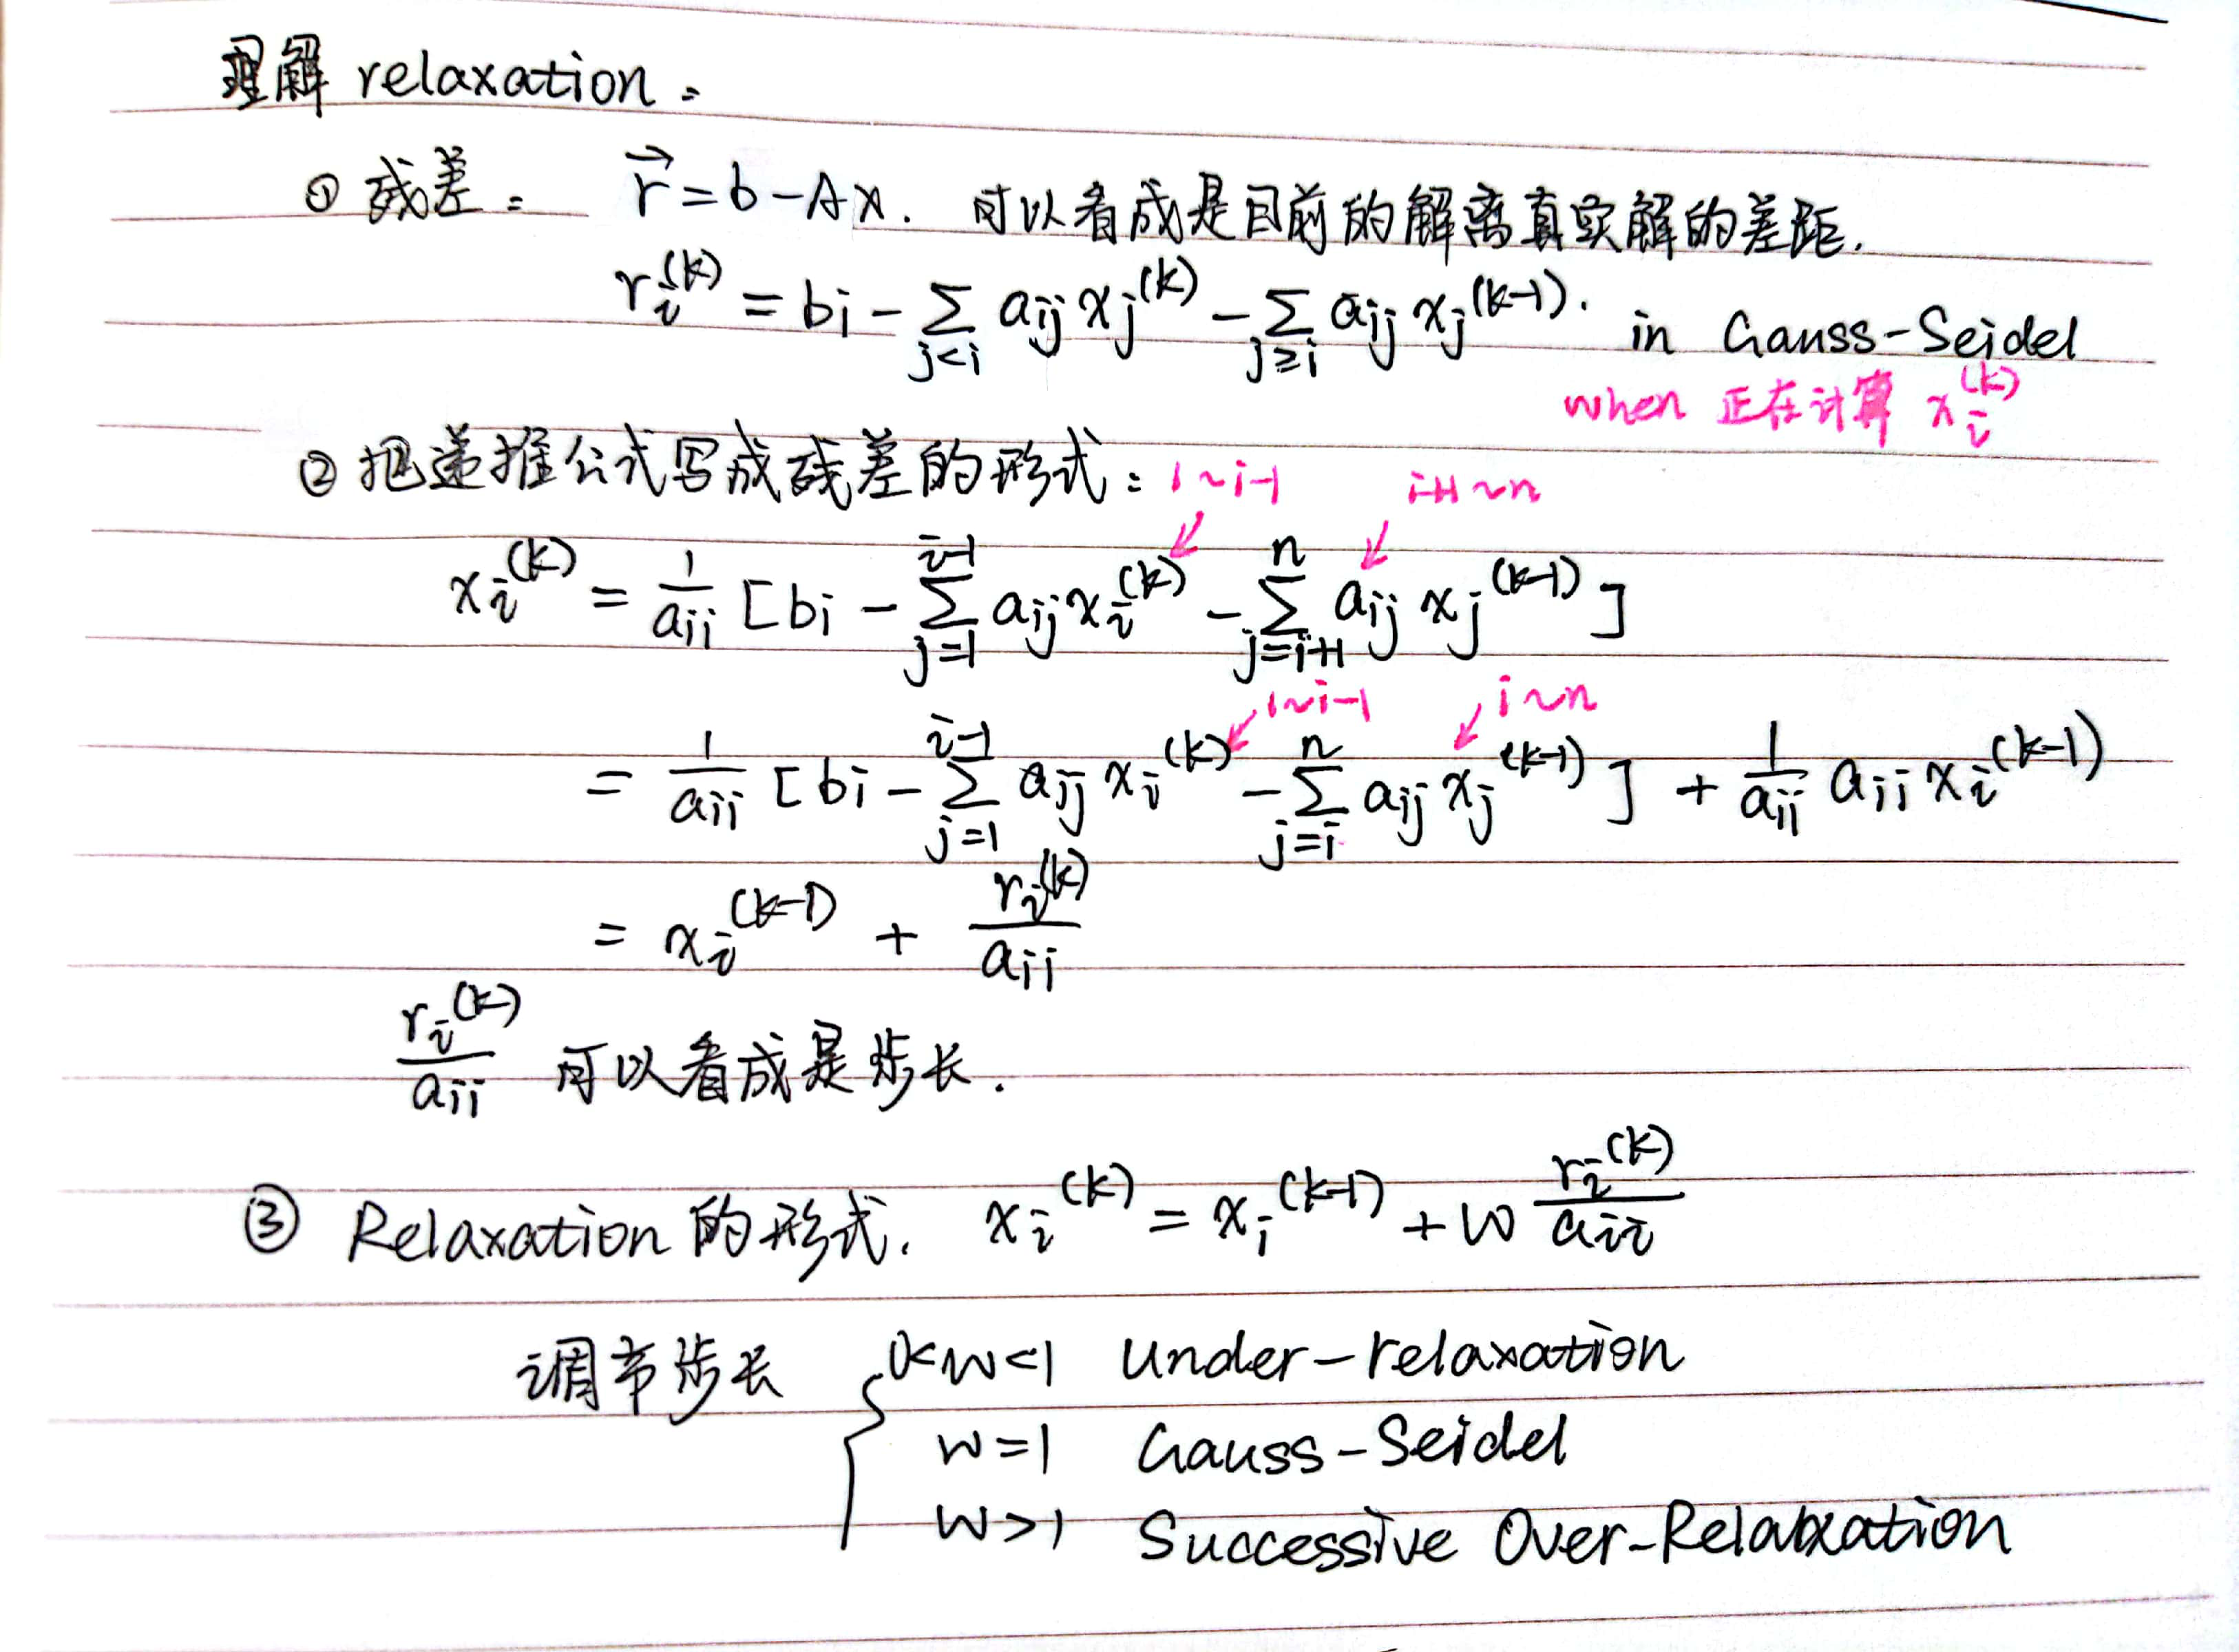 理解 relaxation:
① 残差: r⃗ = b - Ax. 可以看成是目前的解离真实解的差距.
r_i^(k) = b_i - ∑_{j<i} a_ij x_j^(k) - ∑_{j≥i} a_ij x_j^(k-1). in Gauss-Seidel
when 正在计算 x_i^(k)
② 把递推公式写成残差的形式: 1~i-1 i+1~n
x_i^(k) = 1/a_ii [b_i - ∑_{j=1}^{i-1} a_ij x_i^(k) - ∑_{j=i+1}^{n} a_ij x_j^(k-1)]
1~i-1 i~n
= 1/a_ii [b_i - ∑_{j=1}^{i-1} a_ij x_i^(k) - ∑_{j=i}^{n} a_ij x_j^(k-1)] + 1/a_ii a_ii x_i^(k-1)
= x_i^(k-1) + r_i^(k)/a_ii
r_i^(k)/a_ii 可以看成是步长.
③ Relaxation 的形式. x_i^(k) = x_i^(k-1) + w r_i^(k)/a_ii
调节步长 { 0<w<1 Under-relaxation
w=1 Gauss-Seidel
w>1 Successive Over-Relaxation